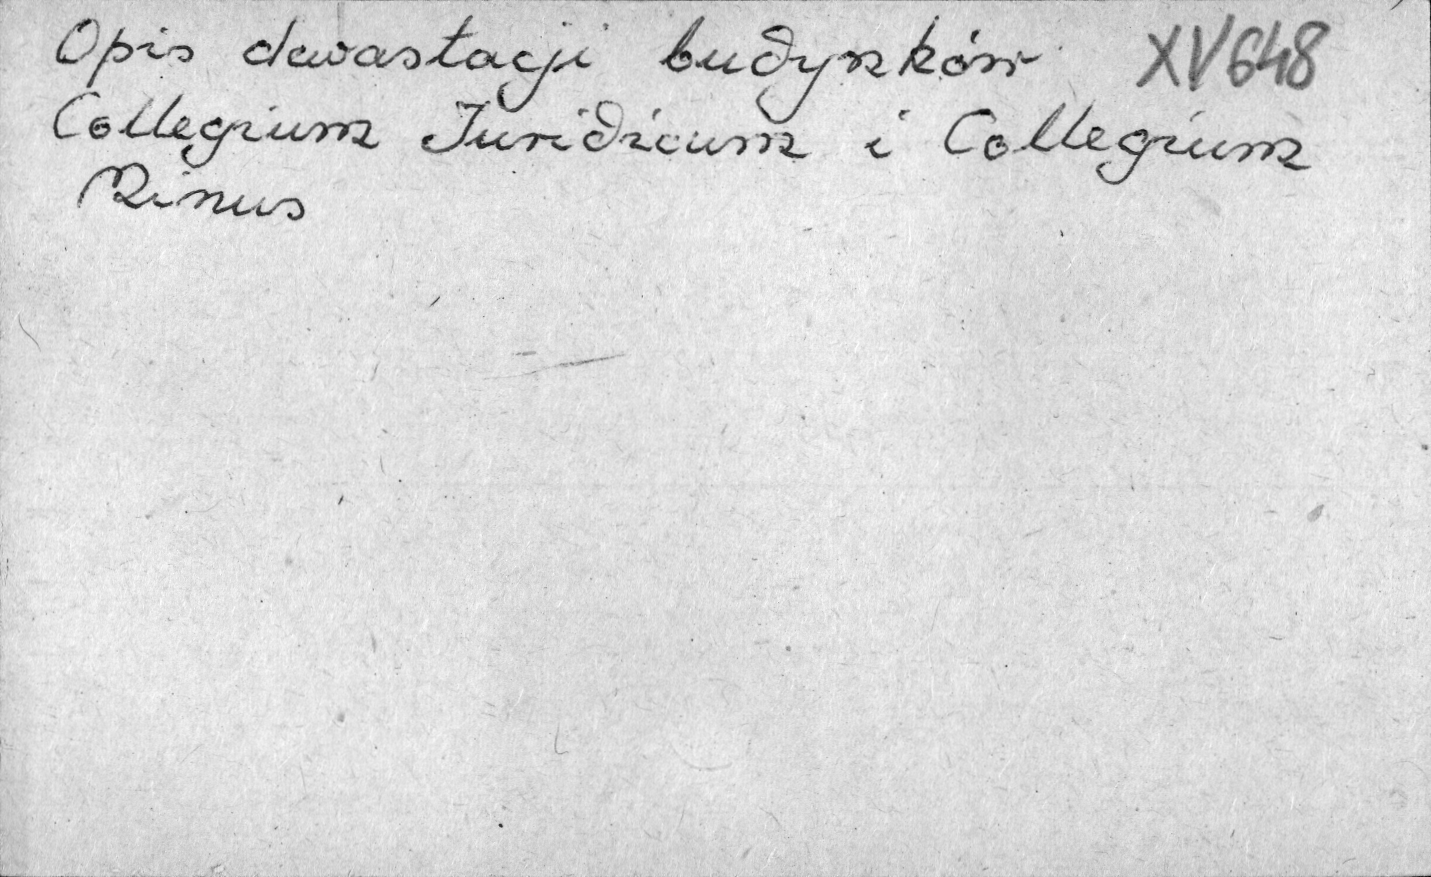 Opis dewastacji budynków XV 648
Collegium Iuridicum i Collegium
Minus